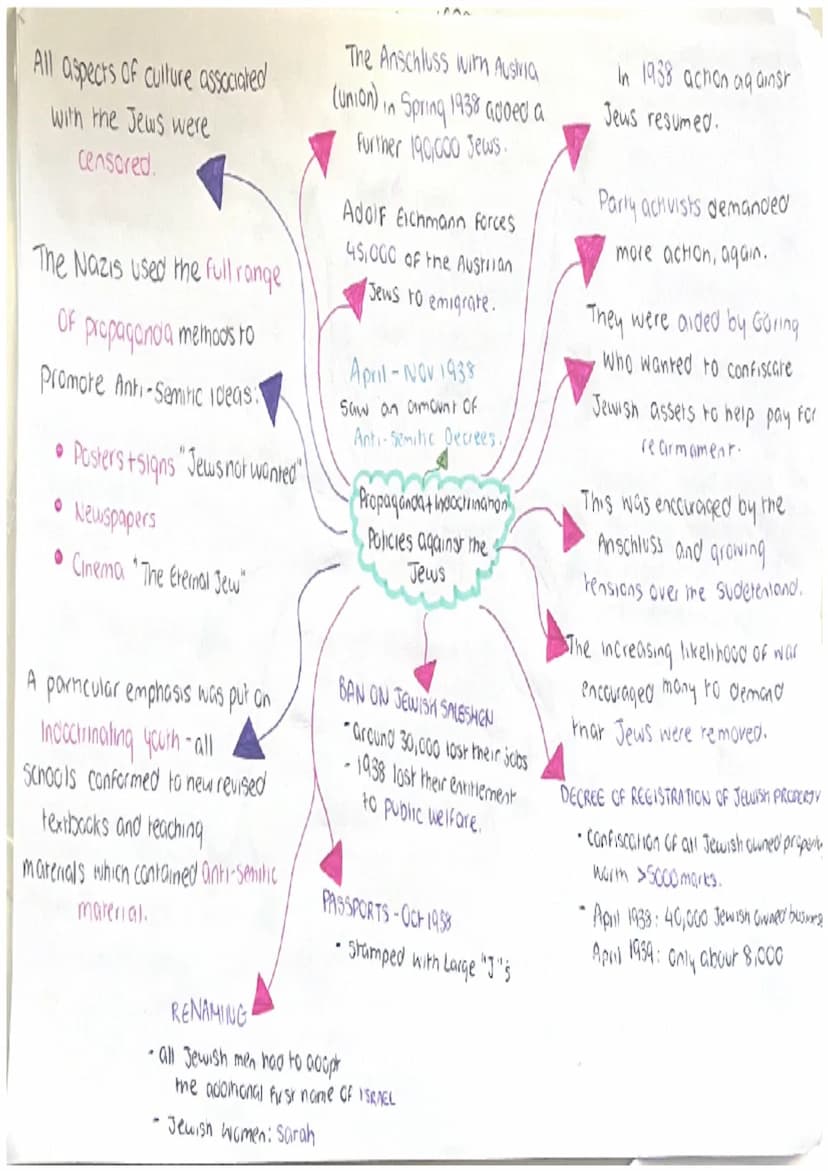 All aspects of culture associated
with the Jews were
censored.
The Nazis used the full range
of propaganda methods to
promote Anti-Semitic ideas:
• Posters + signs "Jews not wanted"
• Newspapers
• Cinema "The Eternal Jew"
A particular emphasis was put on
Indoctrinating youth - all
schools conformed to new revised
textbooks and teaching
materials which contained anti-semitic
material.
The Anschluss with Austria
(union) in Spring 1938 added a
further 190,000 Jews.
Adolf Eichmann forces
45,000 of the Austrian
Jews to emigrate.
April - Nov 1938
saw an amount of
Anti-Semitic Decrees.
Propaganda + Indoctrination
Policies against the
Jews
In 1938 action against
Jews resumed.
Party activists demanded
more action, again.
They were aided by Göring
who wanted to confiscate
Jewish assets to help pay for
rearmament.
This was encouraged by the
Anschluss and growing
tensions over the Sudetenland.
The increasing likelihood of war
encouraged many to demand
that Jews were removed.
BAN ON JEWISH SALESMEN
- around 30,000 lost their jobs
- 1938 lost their entitlement
to public welfare.
DECREE OF REGISTRATION OF JEWISH PROPERTY
• Confiscation of all Jewish owned property
worth >5000 marks.
- April 1938: 40,000 Jewish owned business
April 1939: only about 8,000
PASSPORTS - Oct 1938
• Stamped with large "J"s
RENAMING
• all Jewish men had to adopt
the additional first name of ISRAEL
- Jewish women: Sarah